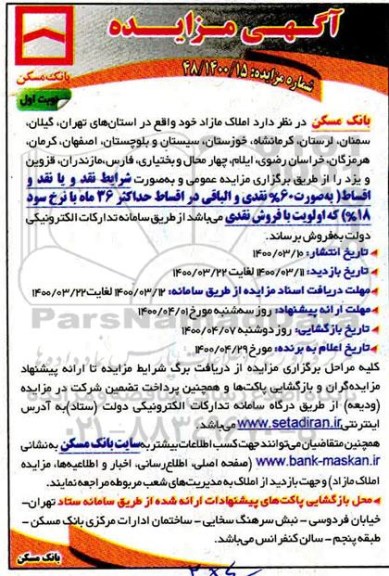 آگهـی مـزایـده
بانک مسکن
شماره مزایده: ۴۸/۱۴۰۰/۱۵
نوبت اول
بانک مسکن در نظر دارد املاک مازاد خود واقع در استان‌های تهران، گیلان،
سمنان، لرستان، کرمانشاه، خوزستان، سیستان و بلوچستان، اصفهان، کرمان،
هرمزگان، خراسان رضوی، ایلام، چهار محال و بختیاری، فارس، مازندران، قزوین
و یزد را از طریق برگزاری مزایده عمومی و به‌صورت شرایط نقد و یا نقد و
اقساط( به‌صورت ۶۰% نقدی و الباقی در اقساط حداکثر ۳۶ ماه با نرخ سود
۱۸%) که اولویت با فروش نقدی می‌باشد از طریق سامانه تدارکات الکترونیکی
دولت به‌فروش برساند.
تاریخ انتشار: ۱۴۰۰/۰۳/۱۰
تاریخ بازدید: ۱۴۰۰/۰۳/۱۱ لغایت ۱۴۰۰/۰۳/۲۲
مهلت دریافت اسناد مزایده از طریق سامانه: ۱۴۰۰/۰۳/۱۲ لغایت ۱۴۰۰/۰۳/۲۲
مهلت ارائه پیشنهاد: روز سه‌شنبه مورخ ۱۴۰۰/۰۴/۰۱
تاریخ بازگشایی: روز دوشنبه ۱۴۰۰/۰۴/۰۷
تاریخ اعلام به برنده: مورخ ۱۴۰۰/۰۴/۲۹
کلیه مراحل برگزاری مزایده از دریافت برگ شرایط مزایده تا ارائه پیشنهاد
مزایده‌گران و بازگشایی پاکت‌ها و همچنین پرداخت تضمین شرکت در مزایده
(ودیعه) از طریق درگاه سامانه تدارکات الکترونیکی دولت (ستاد) به آدرس
اینترنتی www.setadiran.ir می‌باشد.
همچنین متقاضیان می‌توانند جهت کسب اطلاعات بیشتر به سایت بانک مسکن به نشانی
www.bank-maskan.ir (صفحه اصلی، اطلاع‌رسانی، اخبار و اطلاعیه‌ها، مزایده
املاک مازاد) و جهت بازدید از املاک به مدیریت‌های شعب مربوطه مراجعه نمایند.
محل بازگشایی پاکت‌های پیشنهادات ارائه شده از طریق سامانه ستاد تهران-
خیابان فردوسی - نبش سرهنگ سخایی - ساختمان ادارات مرکزی بانک مسکن -
طبقه پنجم - سالن کنفرانس می‌باشد.
بانک مسکن